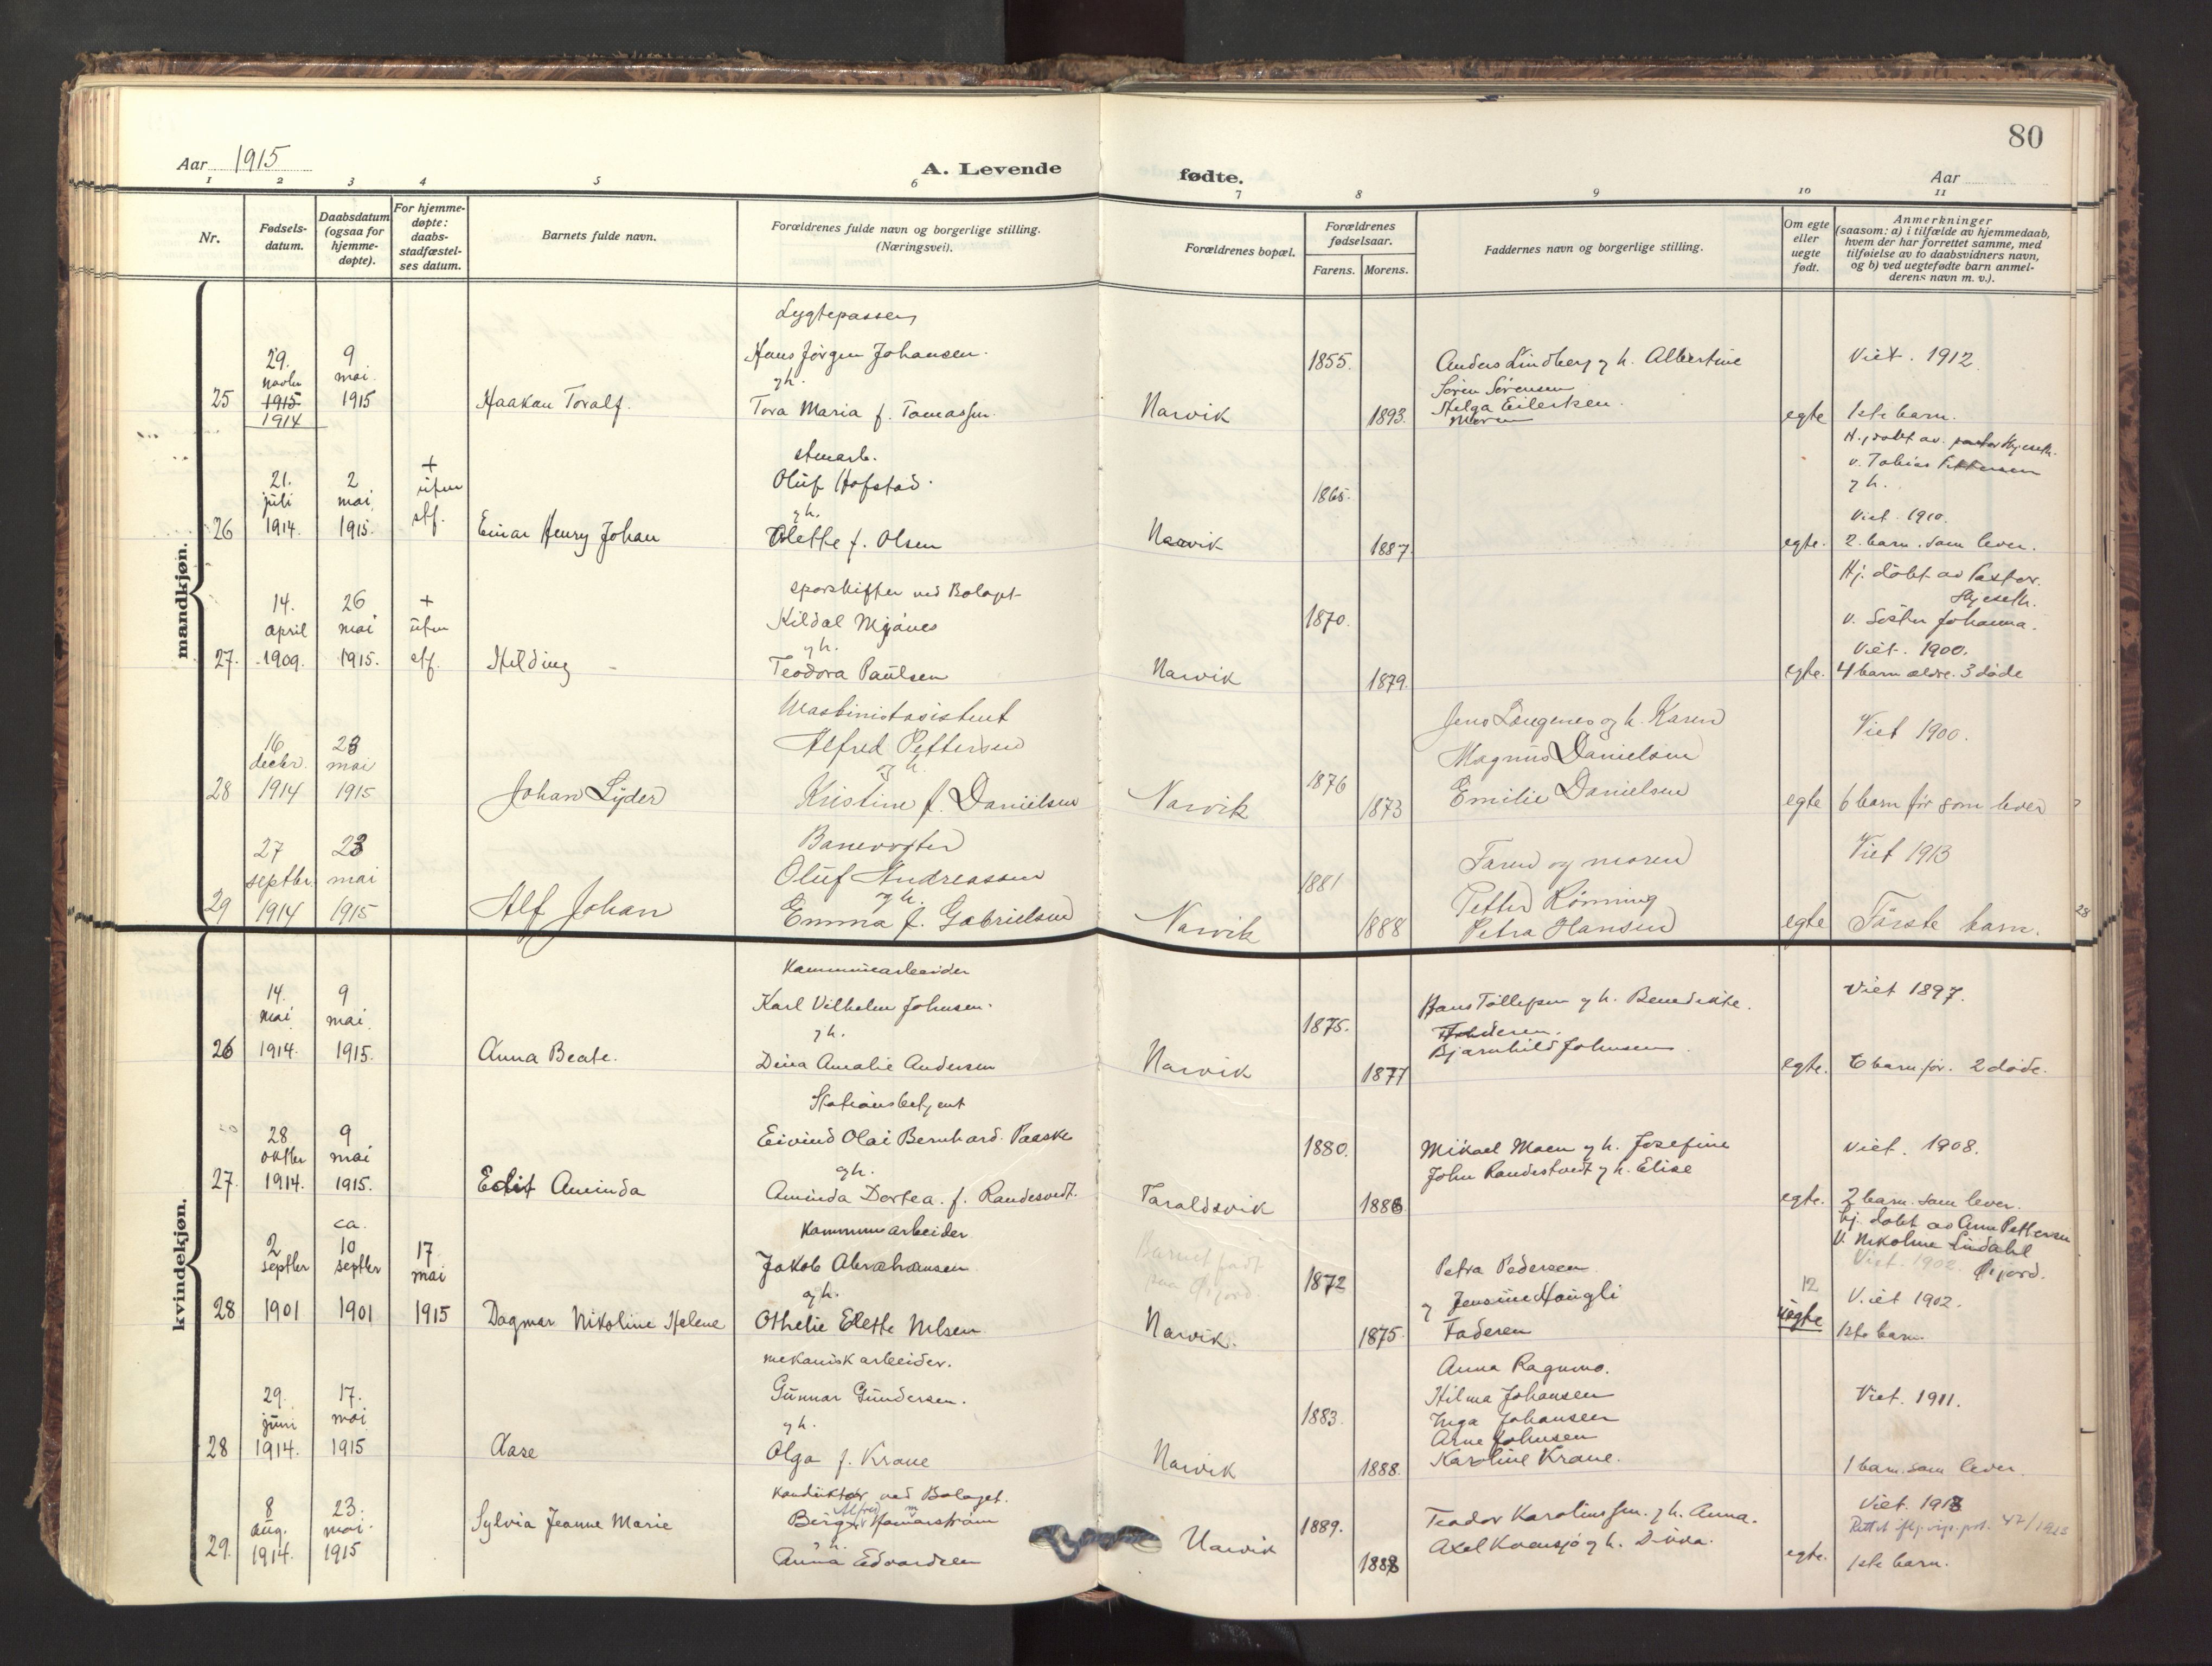 80
Aar 1915
A. Levende
fødte.
Aar
1 2 3 4 5 6 7 8 9 10 11
Nr.
Fødsels-
datum.
Daabsdatum
(ogsaa for
hjemme-
døpte).
For hjemme-
døpte:
daabs-
stadfæstel-
ses datum.
Barnets fulde navn.
Forældrenes fulde navn og borgerlige stilling.
(Næringsvei).
Forældrenes bopæl.
Forældrenes
fødselsaar.
Farens. Morens.
Faddernes navn og borgerlige stilling.
Om egte
eller
uegte
født.
Anmerkninger
(saasom: a) i tilfælde av hjemmedaab,
hvem der har forrettet samme, med
tilføielse av to daabsvidners navn,
og b) ved uegtefødte barn anmel-
derens navn m. v.).
mandkjøn.
25
29.
novbr
1915
1914
9
mai.
1915
Haakon Toralf.
Lygtepasser
Hans Jørgen Johansen.
og h.
Tora Maria f. Tomassen.
Narvik
1855.
1893.
Anders Lindberg og h. Albertine
Søren Sørensen
Helga Eilertsen.
Moren
egte
Viet. 1912
1ste barn.
26
21.
juli
1914.
2
mai
1915.
+
uten
stf.
Einar Henry Johan
stuearb.
Oluf Hofstad.
og h.
Olette f. Olsen
Narvik
1865.
1887.
egte.
Hj. døbt av pastor Hjeseth.
v. Tobias Pettersen
og h.
Viet. 1910.
2. barn. som lever.
27.
14.
april
1909.
26
mai
1915.
+
uten
stf.
Hilding
sporskifter ved Bolaget
Kildal Mjånes
og h.
Teodora Paulsen
Narvik
1870.
1879.
egte.
Hj. døbt av Pastor.
Hjeseth.
v. Søster Johanna.
Viet. 1900.
4 barn ældre. 3 døde
28
16
decbr.
1914
23
mai
1915
Johan Lyder
Maskinistasistent
Alfred Pettersen
og h.
Kristine f. Danielsen
Narvik
1876
1873
Jens Longenes og h. Karen
Magnus Danielsen
Emilie Danielsen
egte
Viet 1900.
6 barn før som lever
29
27
septbr.
1914
23
mai
1915
Alf Johan
Banevogter
Oluf Andreassen
og h.
Emma f. Gabrielsen
Narvik
1881
1888
Faren og moren
Petter Rønning
Petra Hansen
egte
Viet 1913
Første barn.
28
kvindekjøn.
26
14.
mai
1914.
9
mai.
1915.
Anna Beate.
Kommunearbeider
Karl Vilhelm Johnsen.
og h.
Dina Amalie Andersen
Narvik
1875.
1877
Hans Tollefsen og h. Benedikte.
Bjarnhild Johnsen.
egte.
Viet 1897.
6 barn før. 2 døde.
27.
28
oktbr
1914.
9
mai
1915.
Edit Aminda
Stationsbetjent
Eivind Olai Bernhard Paaske
og h.
Aminda Dortea. f. Randesvedt.
Taraldsvik
1880.
1886
Mikael Moen og h. Josefine
John Randestvedt og h. Elise
egte.
Viet. 1908.
2 barn. som lever.
28
2
septbr
1901
ca.
10
septbr
1901
17
mai
1915
Dagmar Nikoline Helene
Kommunearbeider
Jakob Abrahamsen.
og h.
Othelie Elette Nilsen.
Barnet født
paa Øijord.
Narvik.
1872
1875.
Petra Pedersen.
og Jensine Haugli
Faderen
12
uegte
hj. døbt av Anne Pettersen
v. Nikoline Lindahl
Viet. 1902. Øijord.
Viet 1902.
1ste barn.
28
29.
juni
1914.
17.
mai
1915
Aase
mekanisk arbeider.
Gunnar Gundersen.
og h.
Olga f. Krane
Narvik
1883.
1888.
Anna Ragnmo.
Hilma Johansen
Inga Johansen
Arne Johnsen
Karoline Krane.
Viet. 1911.
1 barn. som lever.
29.
8
aug.
1914.
23.
mai.
1915
Sylvia Jeanne Marie
Konduktør ved Bolaget.
Alfred
Birger Hamarstrøm
og h.
Anna Edvardsen
Narvik
1889.
1888
Teodor Karolinssen. og h. Anna.
Axel Kvensjø og h.
egte.
Viet. 1913
47/1915
1ste barn.